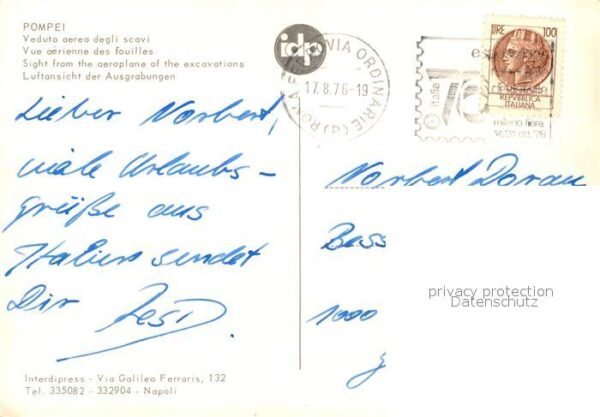 POMPEI
Veduta aerea degli scavi
Vue aérienne des fouilles
Sight from the aeroplane of the excavations
Luftansicht der Ausgrabungen
idp
ROMA FERROVIA ORDINARIE
17.8.76-19
Italia
76
milano fiera
LIRE 100
REPVBBLICA
ITALIANA
Lieber Norbert,
viele Urlaubs-
grüße aus
Italien sendet
Dir
Norbert Dorau
Bess
1000
privacy protection
Datenschutz
Interdipress - Via Galileo Ferraris, 132
Tel. 335082 - 332904 - Napoli